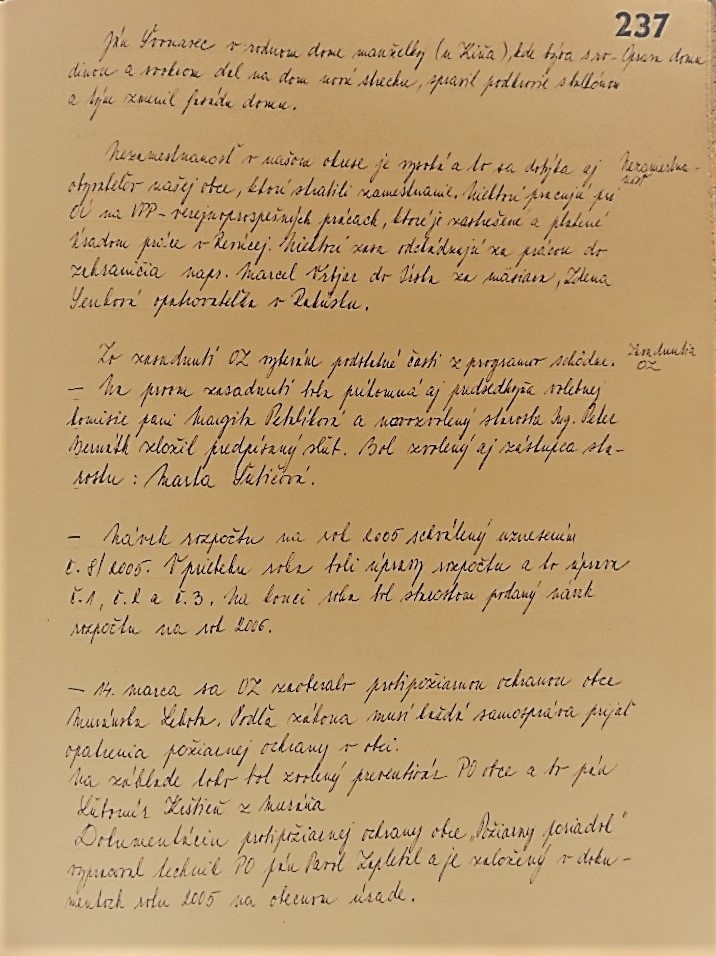 237
Ján Švonavec v rodnom dome manželky (u Kiša), kde býva s ro- Oprava domu
dinou a svokrom dal na dom novú strechu, spravil podkrovie s balkónom
a tým zmenil fasádu domu.
Nezamestnanosť v našom okrese je vysoká a to sa dotýka aj Nezamestna-
obyvateľov našej obce, ktorí stratili zamestnanie. Niektorí pracujú pri nosť
OÚ na VPP - verejnoprospešných prácach, ktoré je zastrešené a platené
Úradom práce v Revúcej. Niektorí zasa odchádzajú za prácou do
zahraničia napr. Marcel Vrbjar do Írska za mäsiara, Zdena
Senková opatrovateľka v Rakúsku.
Zo zasadnutí OZ vyberám podstatné časti z programov schôdze. Zasadnutia
OZ
- Na prvom zasadnutí bola prítomná aj predsedkyňa volebnej
komisie pani Margita Petrlíková a novozvolený starosta Ing. Peter
Bernáth zložil predpísaný sľub. Bol zvolený aj zástupca sta-
rostu : Marta
- Návrh rozpočtu na rok 2005 schválený uznesením
č. 8/2005. V priebehu roka boli úpravy rozpočtu a to úprava
č. 1, č. 2 a č. 3. Na konci roka bol starostom podaný návrh
rozpočtu na rok 2006.
- 14. marca sa OZ zaoberalo protipožiarnou ochranou obce
Muránska Lehota. Podľa zákona musí každá samospráva prijať
opatrenia požiarnej ochrany v obci.
Na základe toho bol zvolený preventivár PO obce a to pán
Ľubomír Krištien z Muráňa
Dokumentáciu protipožiarnej ochrany obce „Požiarny poriadok“
vypracoval technik PO pán Pavol Zapletal a je založený v doku-
mentoch roku 2005 na obecnom úrade.